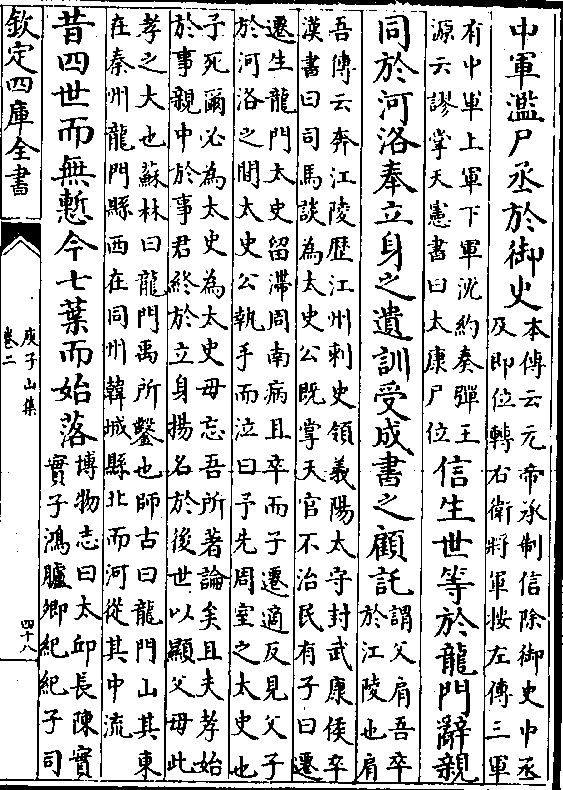 中軍濫尸丞於御史
本傳云元帝承制信除御史中丞
及即位轉右衛將軍按左傳三軍
有中軍上軍下軍沈約奏彈王
源云謬掌天憲書曰太康尸位
信生世等於龍門辭親
同於河洛奉立身之遺訓受成書之顧託
謂父肩吾卒
於江陵也肩
吾傳云奔江陵歴江州刺史領義陽太守封武康侯卒
漢書曰司馬談為太史公既掌天官不治民有子曰遷
遷生龍門太史留滯周南病且卒而子遷適反見父子
於河洛之間太史公執手而泣曰予先周室之太史也
子死爾必為太史為太史毋忘吾所著論矣且夫孝始
於事親中於事君終於立身揚名於後世以顯父母此
孝之大也蘇林曰龍門禹所鑿也師古曰龍門山其東
在秦州龍門縣西在同州韓城縣北而河從其中流
昔四世而無慙今七葉而始落
博物志曰太邱長陳實
實子鴻臚卿紀紀子司
欽定四庫全書
庾子山集
卷二
四十八